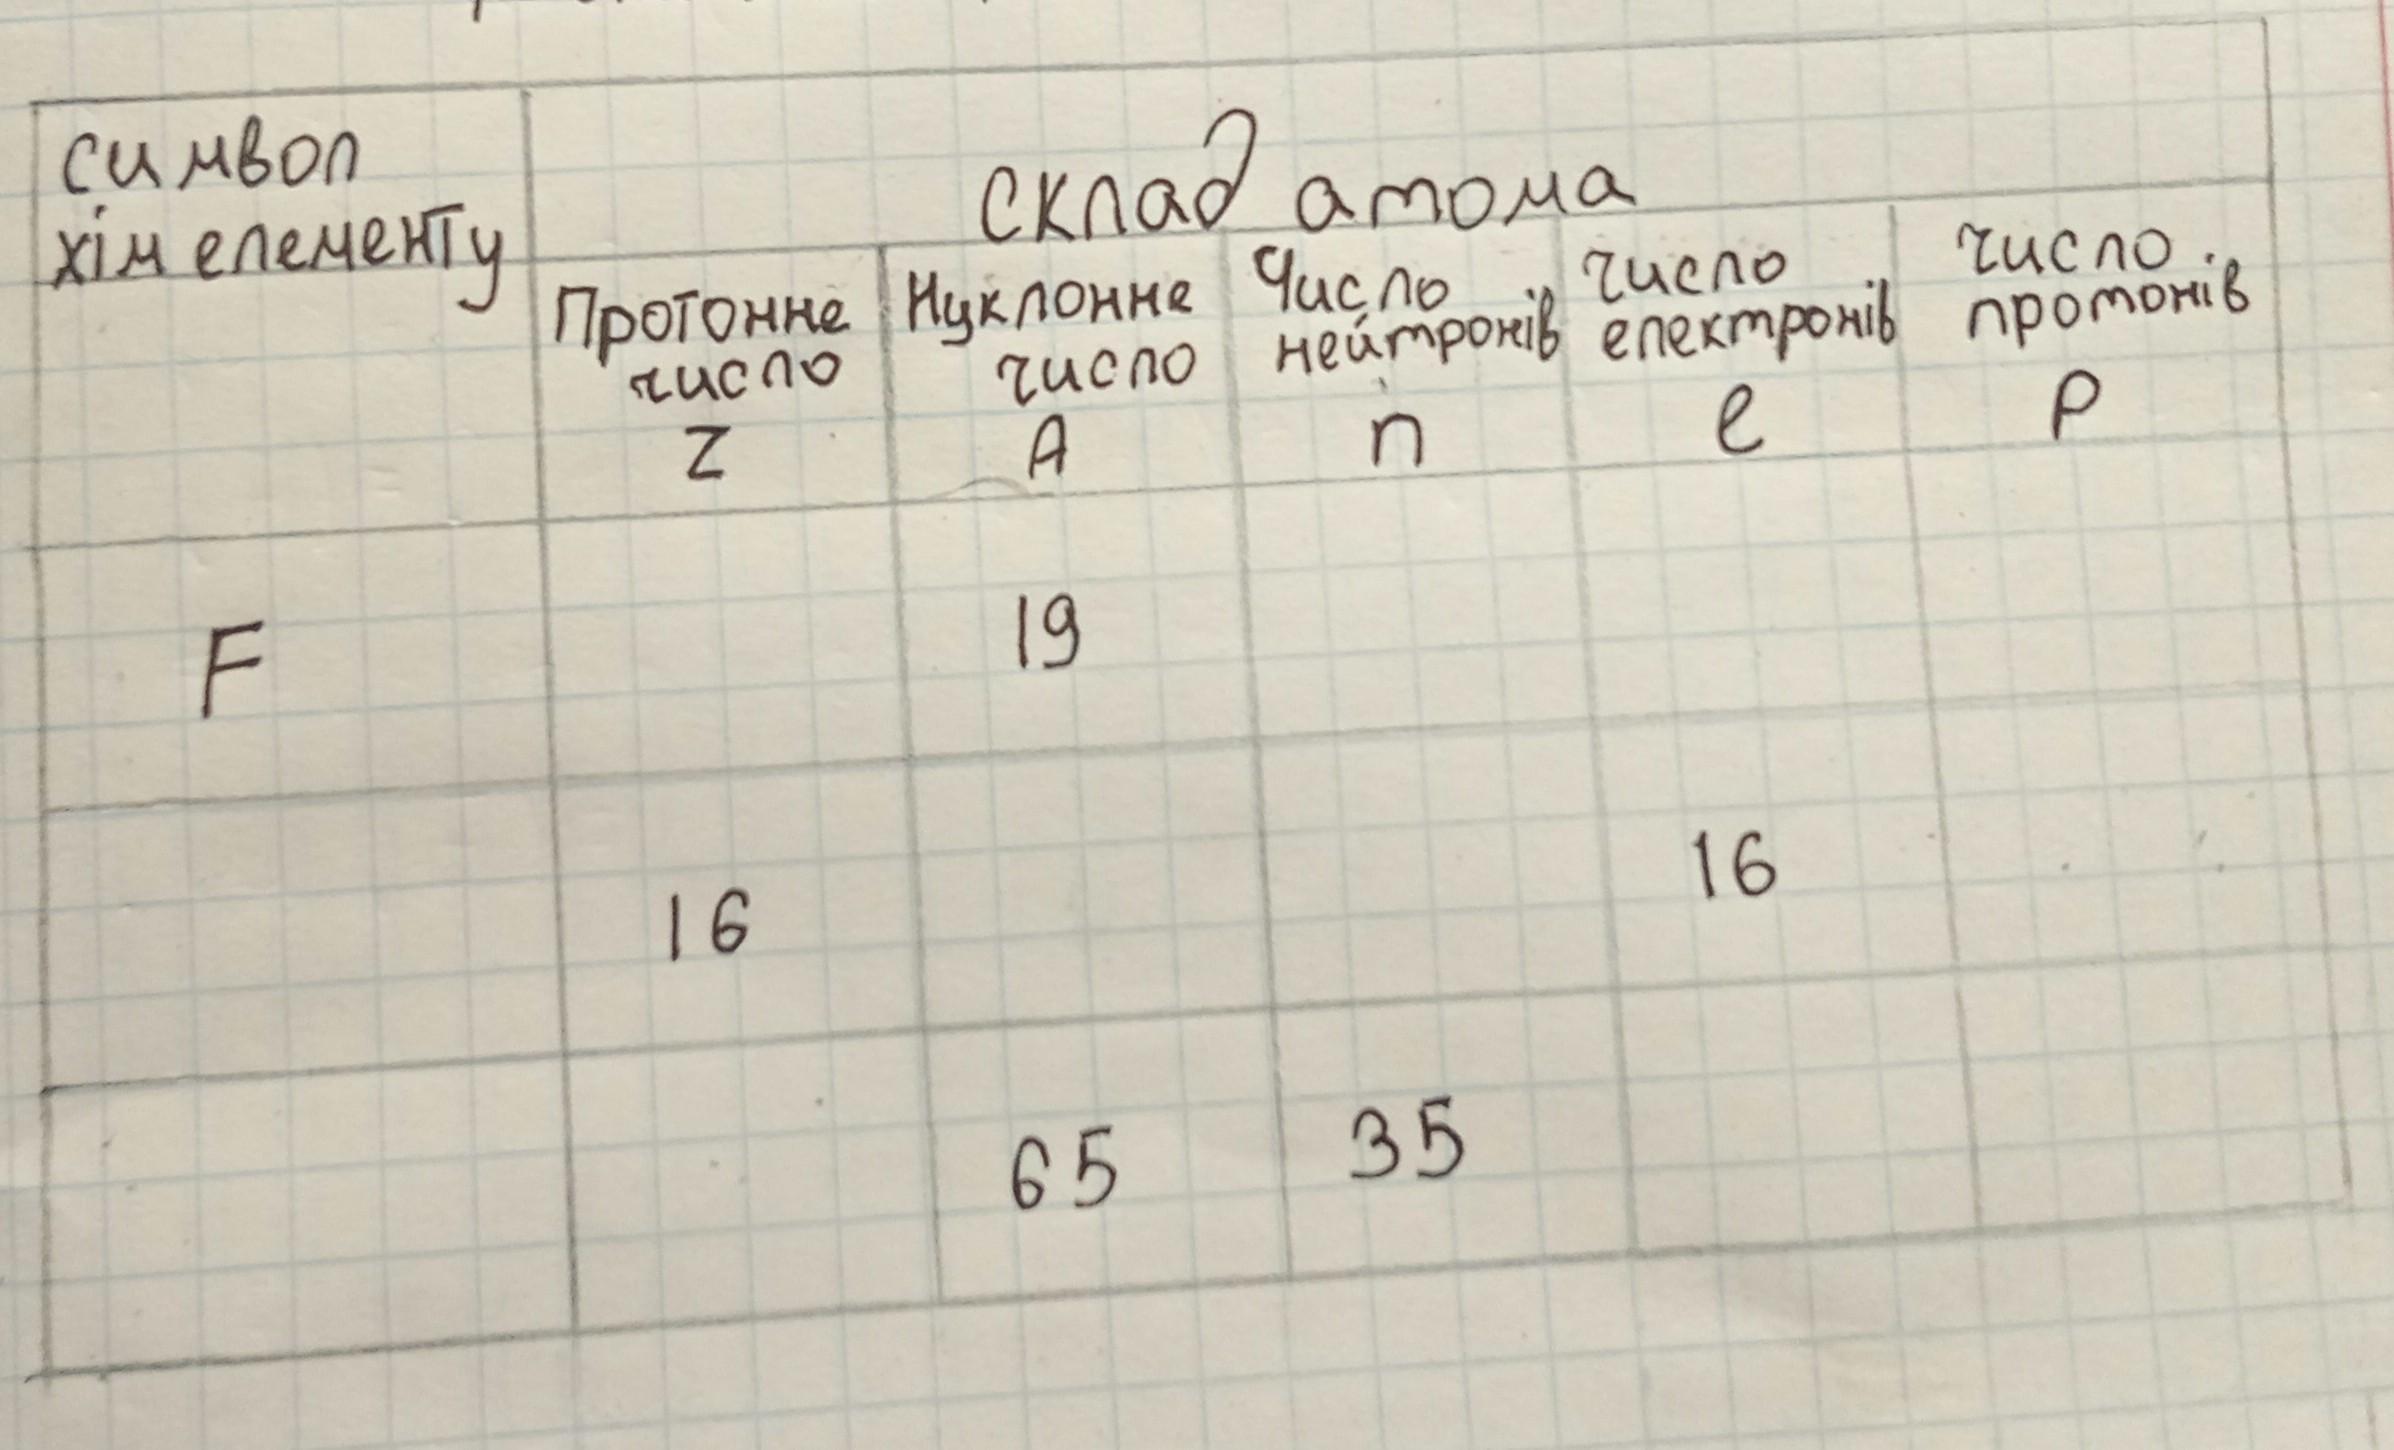 символ
хім елементу
склад атома
Протонне
число
Z
Нуклонне
число
A
Число
нейтронів
n
число
електронів
e
число
протонів
P
F
19
16
16
65
35